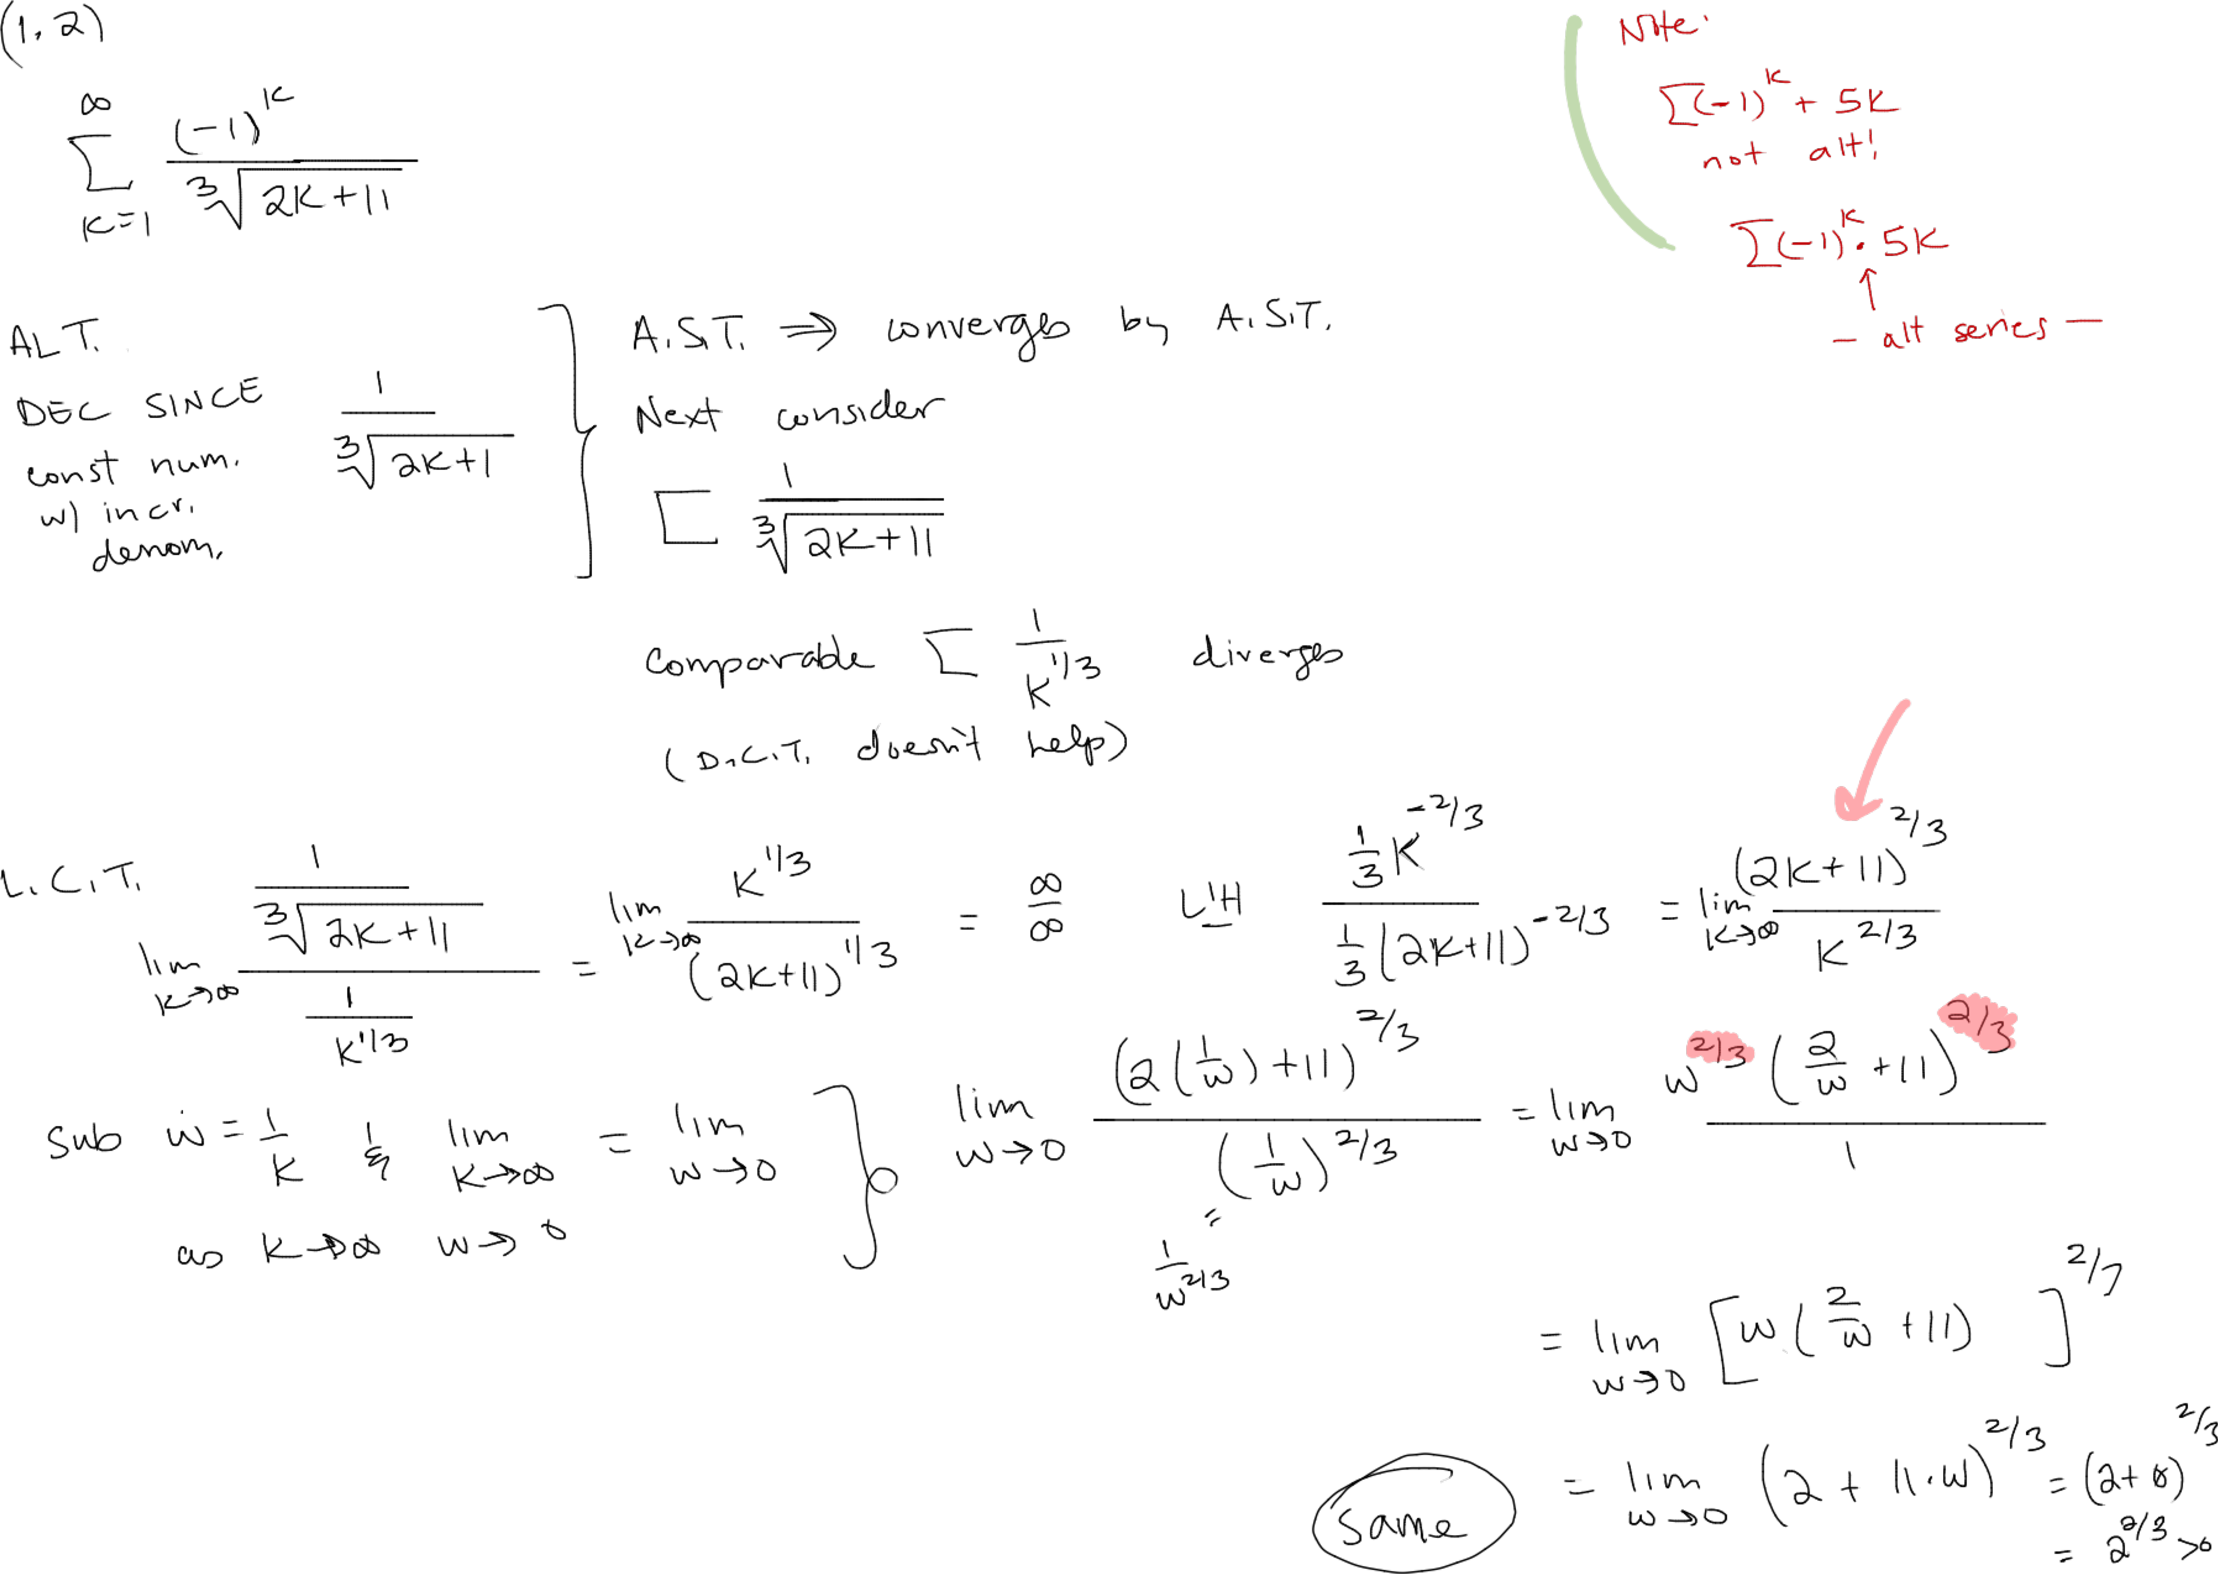 (1,2)
∞
∑ (-1)^K / ∛(2K+11)
K=1
Note:
∑(-1)^K + 5K
not alt!
∑(-1)^K • 5K
↑
- alt series -
ALT.
DEC SINCE 1 / ∛(2K+1)
const num.
w/ incr.
denom.
A.S.T. ⇒ converges by A.S.T.
Next consider
∑ 1 / ∛(2K+11)
comparable ∑ 1 / K^1/3 diverges
(D.C.T. doesn't help)
L.C.T. lim K→∞ (1 / ∛(2K+11)) / (1 / K^1/3) = lim K→∞ K^1/3 / (2K+11)^1/3 = ∞/∞ L'H (1/3 K^-2/3) / (1/3 (2K+11)^-2/3) = lim K→∞ (2K+11)^2/3 / K^2/3
Sub w = 1/K & lim K→∞ = lim w→0
as K→∞ w→0
lim w→0 (2(1/w)+11)^2/3 / (1/w)^2/3 = lim w→0 w^2/3 (2/w +11)^2/3 / 1
=
1 / w^2/3
= lim w→0 [w(2/w +11) ]^2/3
= lim w→0 (2 + 11·w)^2/3 = (2+0)^2/3
= 2^2/3 >0
same